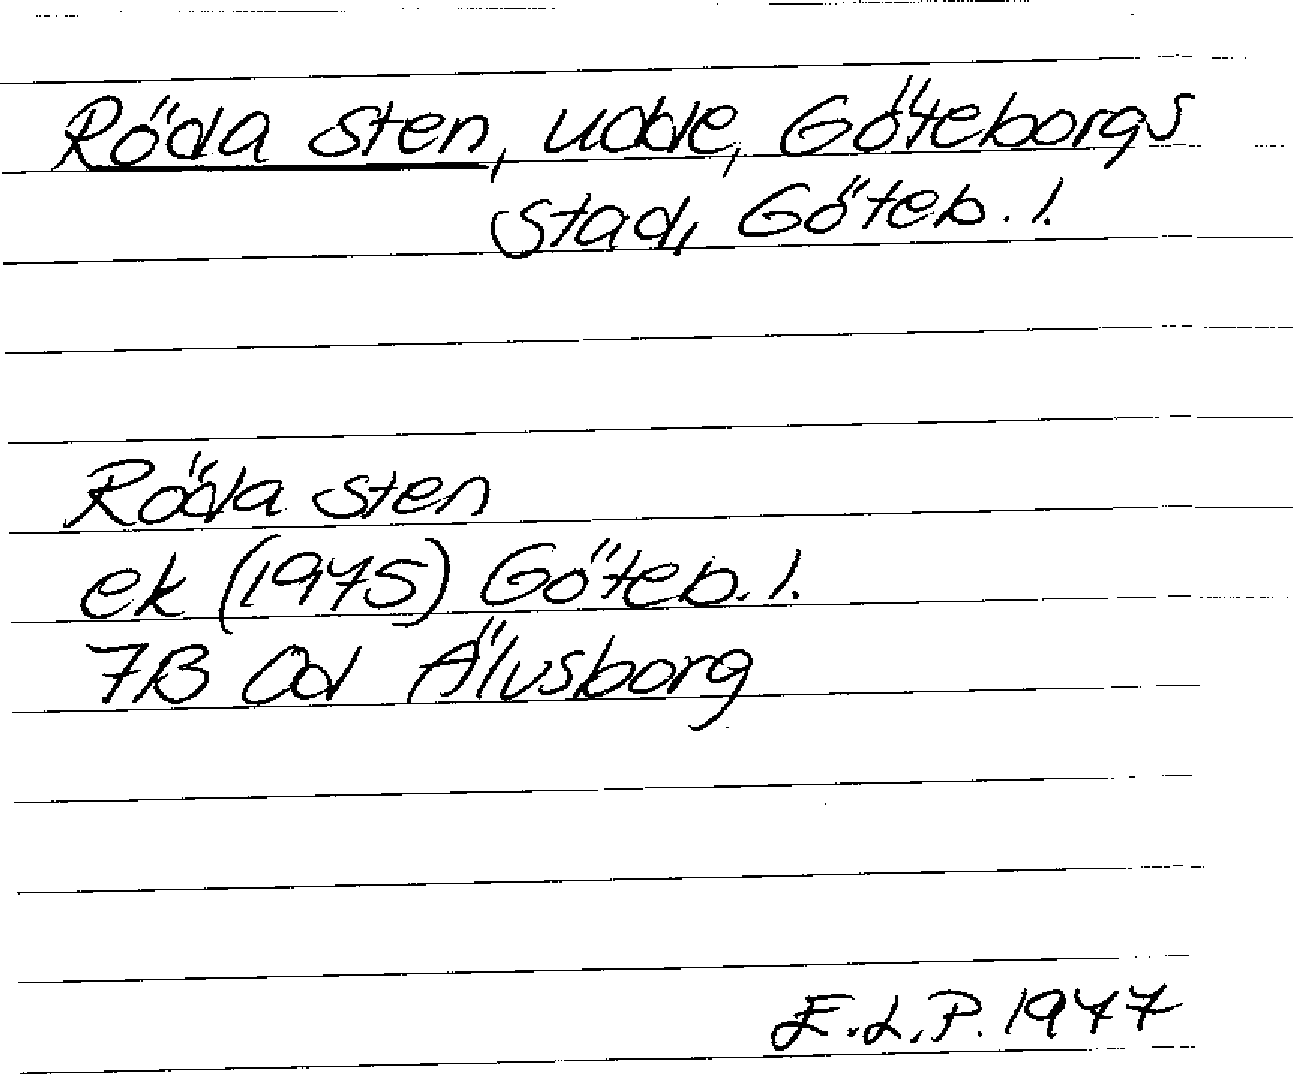 Röda sten, udde, Göteborgs
stad, Göteb. l.
Röda sten
ek (1975) Göteb. l.
7B 0d Älvsborg
E.L.P. 1977